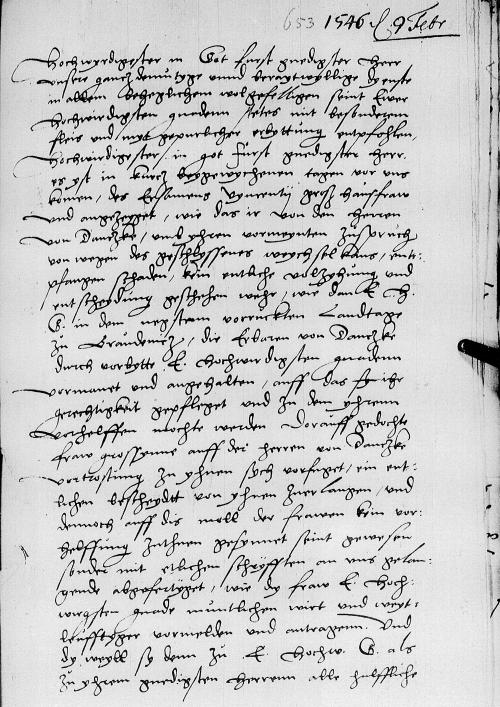 653 1546 9 Febr
Hochwirdigster in Got furst gnedigster Herr
unsere gancz demutige unnd berayttwyllige dyenste
in allem beheglichem wolgefelligen seint Ewer
Hochwirdigsten gnaden stetes mit besonderem
fleis und myt gepurlicher erbyttung entpfohlen,
Hochwirdigester in got Fürst gnedigster herr.
es yst in kurcz beygewychenen tagen vor uns
komen, des Ersamens hausfraw
und angezeyget, wie das ir von den herren
von Danczke, umb yhren vormeynten zuspruch
von wegen des geschlyssenes weychsel haus, ent:
pfangen schaden, kein entliche volzyhung und
entscheydung geschehen wehr, wie dan E. H.
G. in dem negstenn vorruckten Landtage
zu Graudentz, die Erbaren von Danczke
durch vorbytte E. Hochwirdigsten gnadenn
vormanet und angehalten, auff das sy ihr
gerechtigkeit gepfleget und zu dem yhrenn
verhelffen mochte werden Darauff gedochte
fraw grossynne auff der herren von Danczke
vortrostung zu yhnen sych vorfuget, ein ent:
lichen bescheydtt von yhnen zuerlangen, und
dennoch auff dis moll der frawen kein vor:
helffung zuthuen gesynnet seint gewesen
sonder mit etlichen schryfften an uns gelan:
gende abgefertyget, wie dy fraw E. Hoch:
wirgsten gnade muntlichen wirt und weyt:
leufftyger vormelden und antragenn. Und
dy weyll sy denn zu E. Hochw. G. als
zu yhrem gnedigsten herrenn alle hulffliche